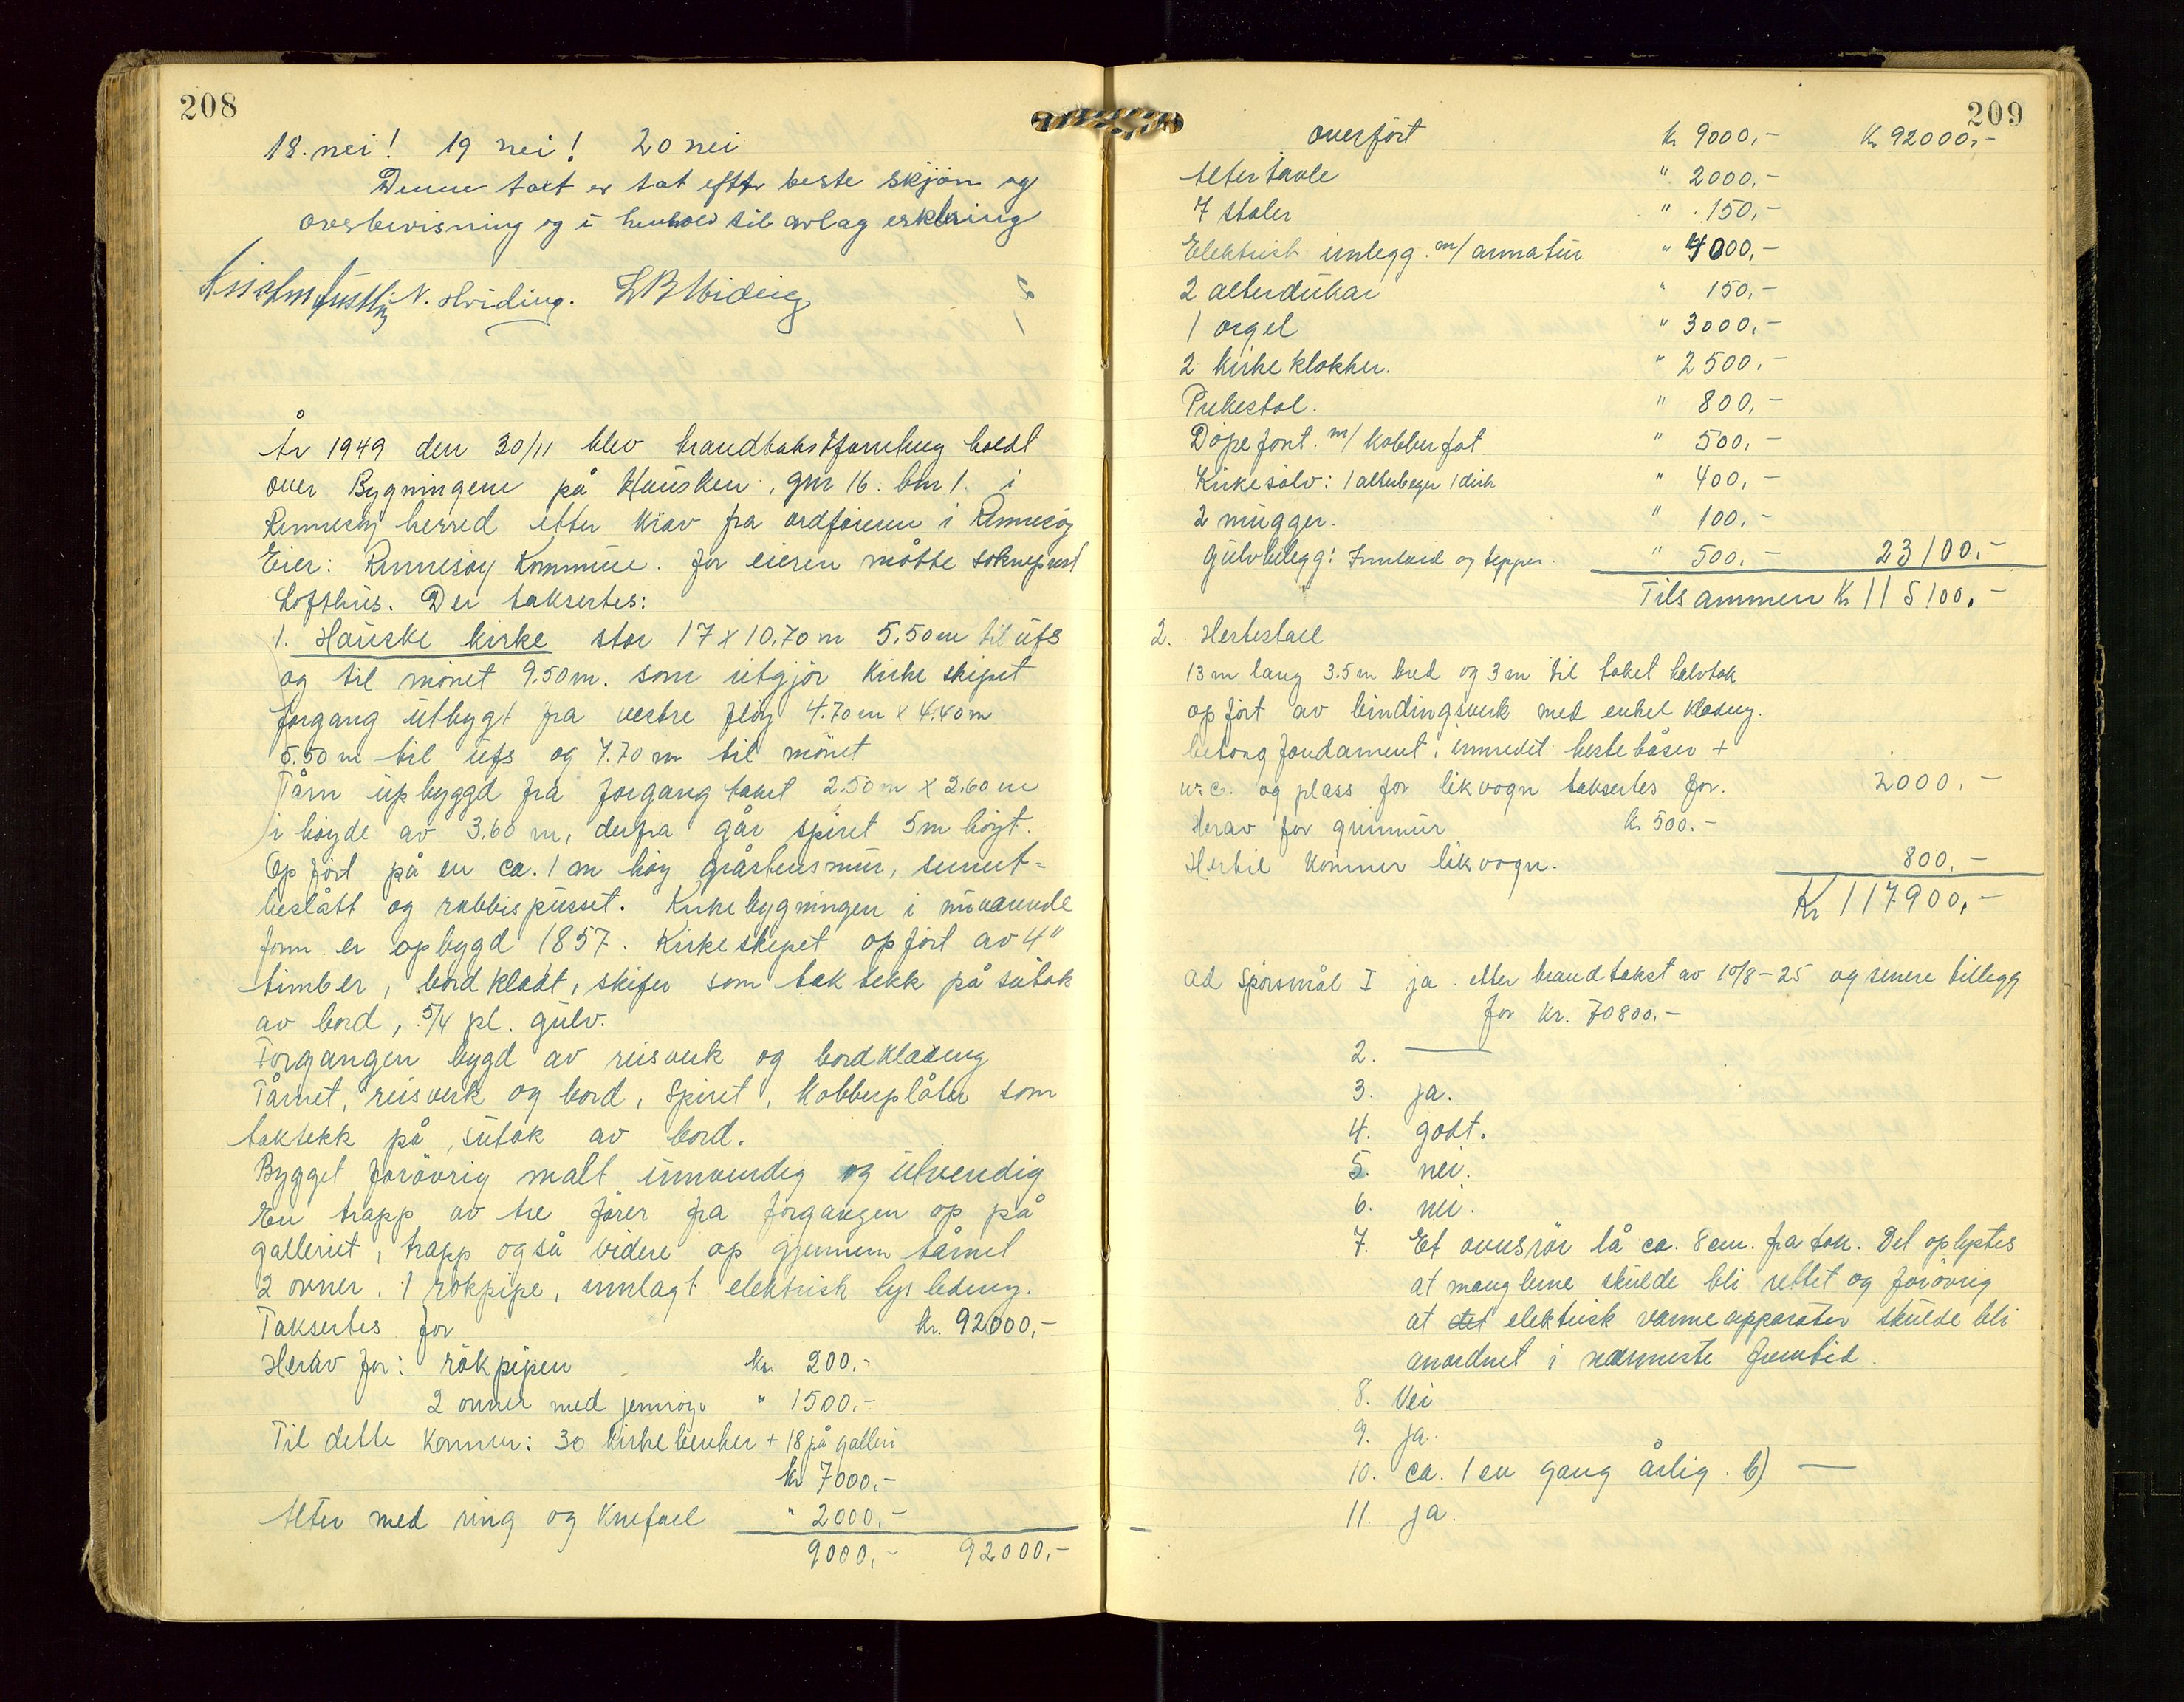 208
18. nei! 19 nei! 20 nei
Denne takt er tat efter beste skjön og
overbevisning og i henhold til avlag erklæring
N. Hviding. L B Hviding
År 1949 den 30/11 blev brandtakstforretning holdt
over Bygningene på Hausken, gnr 16. bnr 1. i
Rennesöy herred etter krav fra ordföreren i Rennesöy
Eier: Rennesöy Kommune. for eieren mötte sokneprest
Lofthus. Der taksertes:
1. Hauske kirke stor 17 x 10.70 m 5.50 m til ufs
og til mönet 9.50 m. som utgjör kirkeskipet
forgang utbygt fra vestre flöy 4.70 m x 4.40 m
5.50 m til ufs og 7.70 m til mönet
Tårn upbyggd fra forgangtaket 2.50 m x 2.60 m
i höyde av 3.60 m, derfra går spiret 5 m höyt.
Opfört på en ca. 1 m höy gråstensmur, sement=
beslått og rabbispusset. Kirkebygningen i nuværende
form er opbygd 1857. Kirkeskipet opfört av 4"
timber, bordklædt, skifer som taktekk på sutak
av bord, 5/4 pl. gulv.
Forgangen bygd av reisverk og bordkledning
Tårnet, reisverk og bord, Spiret, Kobberplåter som
taktekk på sutak av bord.
Bygget forövrig malt innvendig og utvendig
En trapp av tre förer fra forgangen op på
galleriet, trapp også videre op gjennem tårnet
2 ovner. 1 rökpipe, innlagt elektrisk lys ledning.
Taksertes for kr. 92000,-
Herav for: rökpipen kr. 200.-
2 ovner med jernrör " 1500.-
Til dette kommer: 30 kirkebenker + 18 på galleri
kr 7000.-
Alter med ring og knefall " 2000.-
9000,- 92000,-
209
overfört Kr 9000,- Kr 92000,-
Altertavle " 2000,-
7 stoler " 150,-
Elektrisk innlegg. m/ armatur " 4000,-
2 alterdukar " 150,-
1 orgel " 3000,-
2 kirkeklokker. " 2500,-
Prekestol. " 800,-
Döpefont. m/ kobberfat " 500,-
Kirkesölv: 1 alterbeger 1 disk " 400,-
2 mugger. " 100,-
Gulvbelegg: Innlaid og tepper. " 500,- 23100,-
Tilsammen Kr 115100,-
2. Hestestall
13 m lang 3.5 m bred og 3 m til taket halvtak
opfört av bindingsverk med enkel kledning.
betong fondament, innredet hestebåser +
w.c. og plass for likvogn taksertes for. 2000.-
Herav for grunnmur kr 500.-
Hertil kommer likvogn. 800.-
Kr 117900,-
ad Spörsmål I ja. etter brandtakst av 10/8-25 og senere tillegg
for Kr. 70800.-
2. —
3. ja.
4. godt.
5. nei.
6. nei.
7. Et ovnsrör lå ca. 8 cm. fra tak. Det oplystes
at manglene skulde bli rettet og forövrig
at det elektrisk varmeapparater skulde bli
anordnet i nærmeste fremtid.
8. Nei
9. ja.
10. ca. 1 en gang årlig. b) —
11. ja.